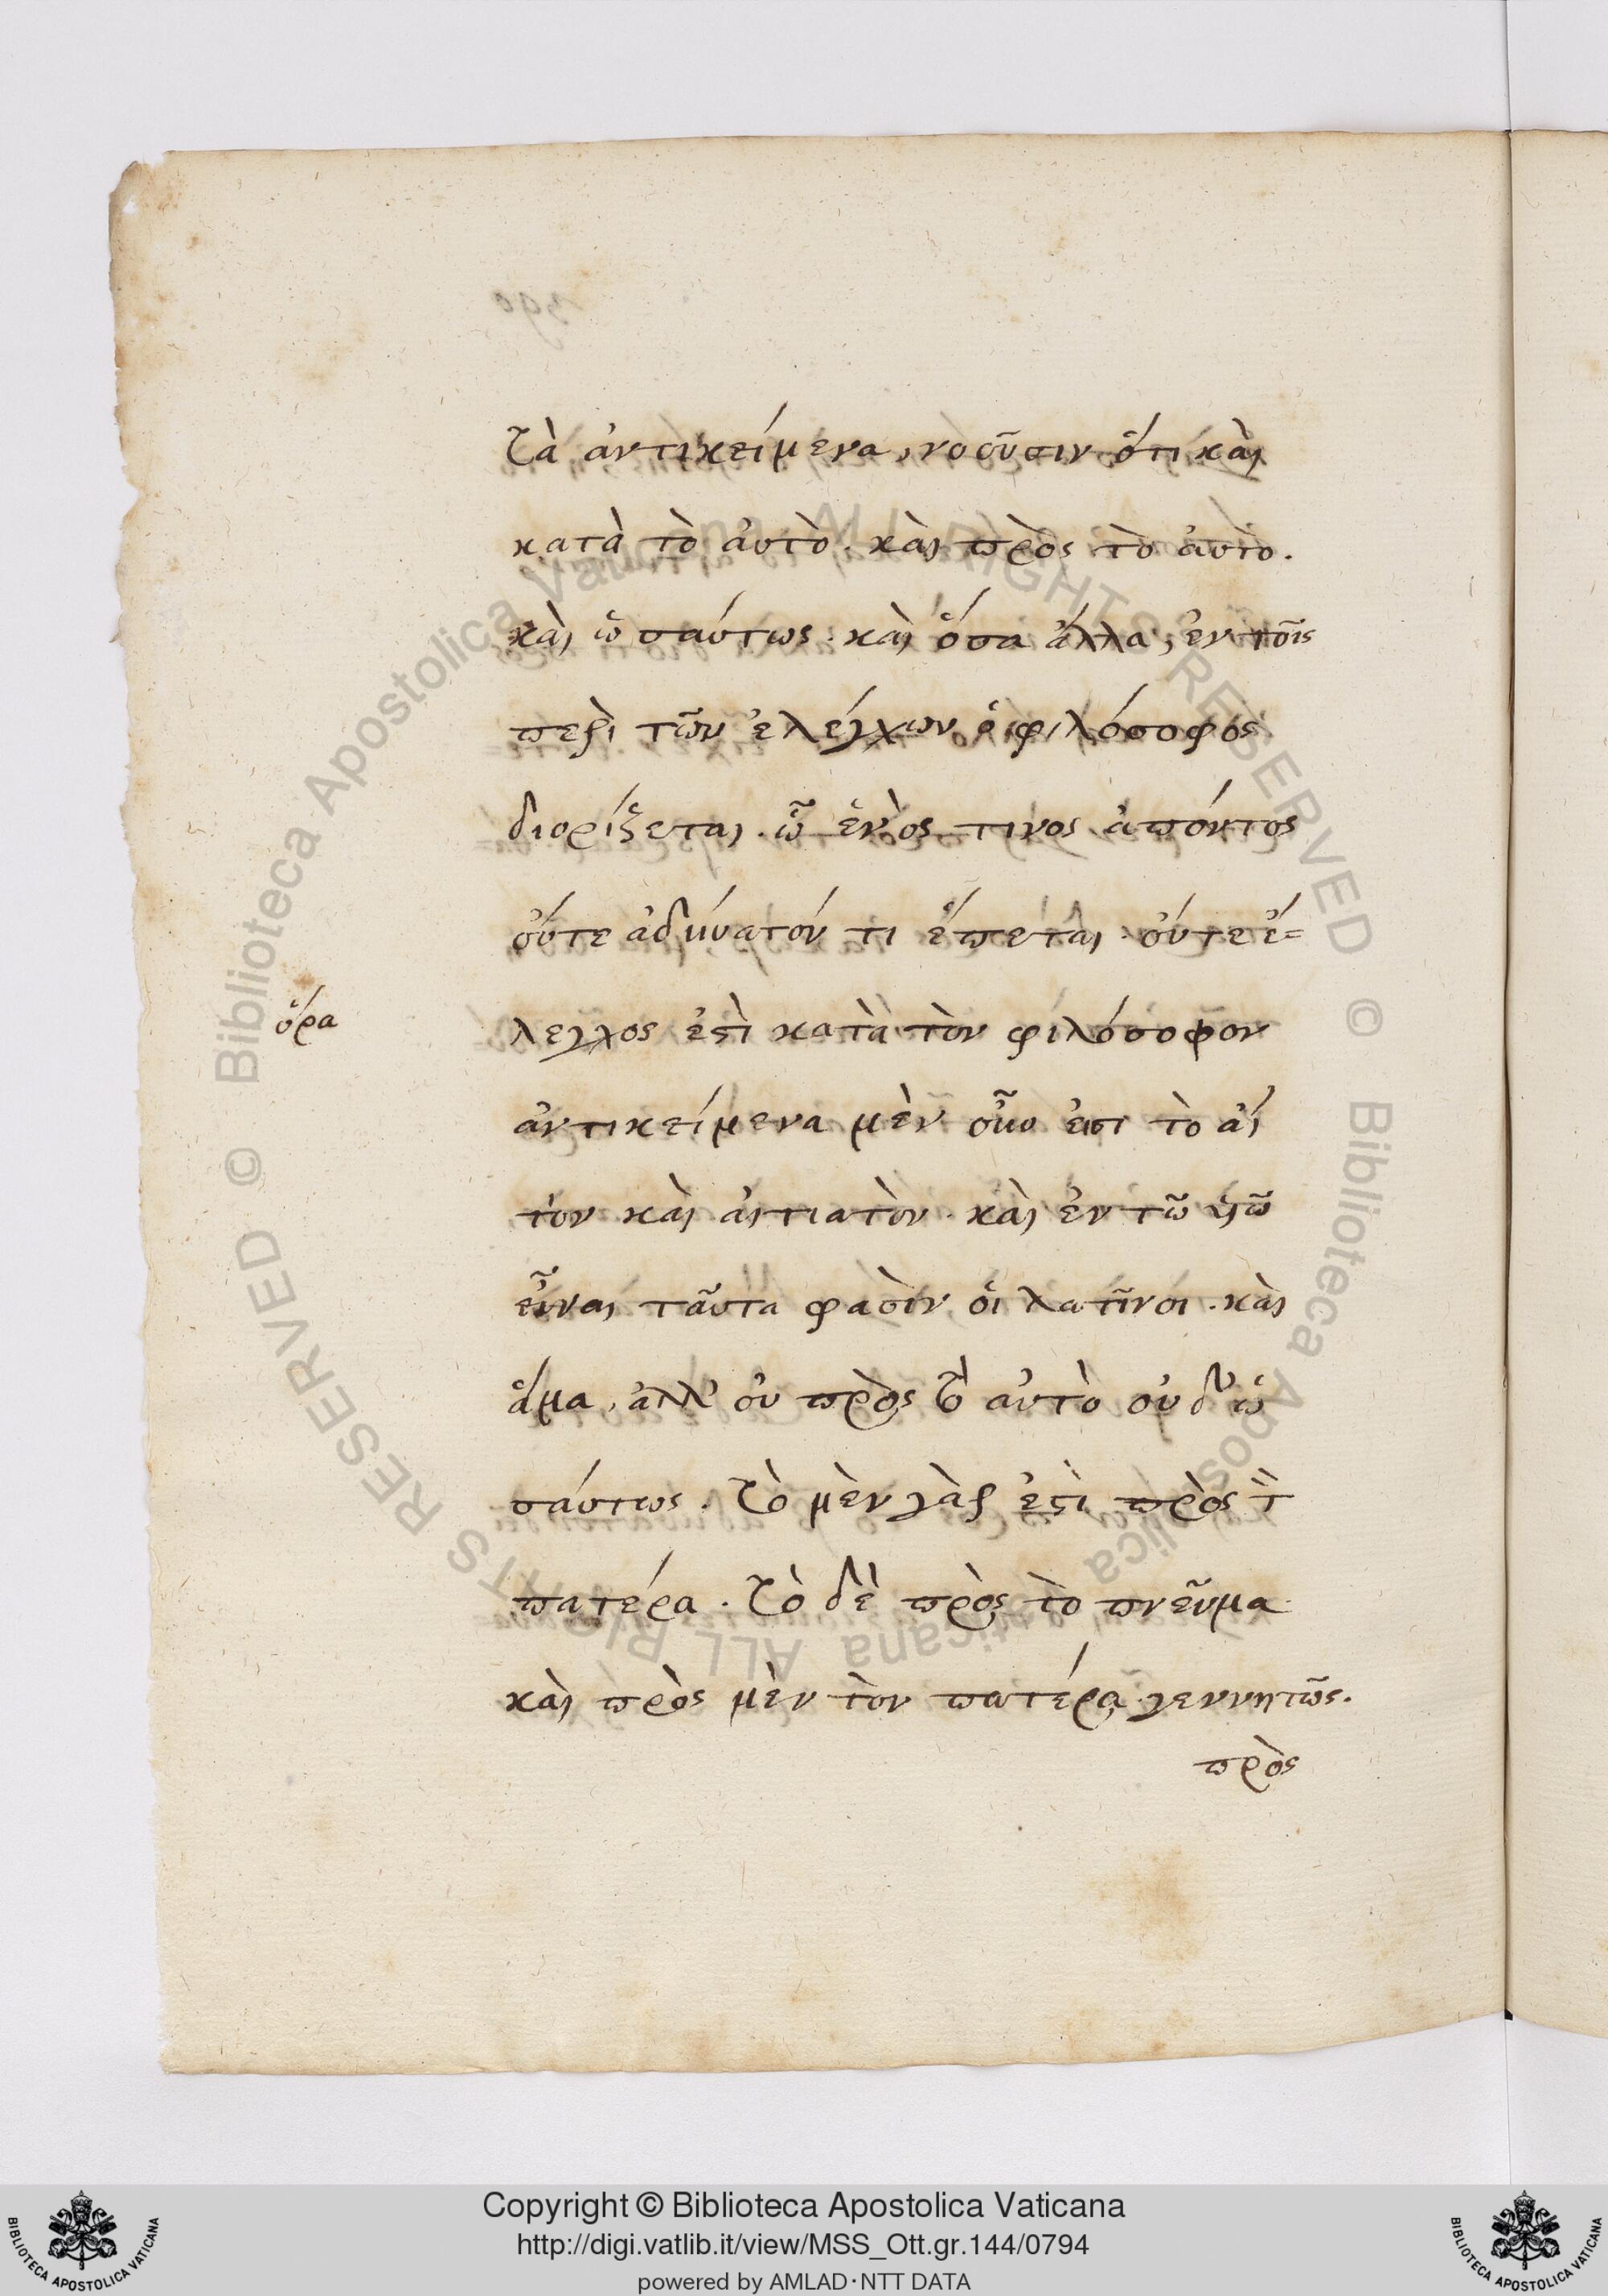 τὰ ἀντικείμενα, νοοῦσιν ὅτι καὶ
κατὰ τὸ ἀυτὸ. καὶ πρὸς τὸ ἀυτὸ.
καὶ ὡσαύτως. καὶ ὅσα ἄλλα, ἐν τοῖς
περὶ τῶν ἐλέγχων ὁ φιλόσοφος
διορίζεται. ὧ ἑνὸς τινος ἀπόντος
οὔτε ἀδύνατόν τι ἕπεται. οὔτε ἔ=
ὅρα
λεγχος ἐστὶ κατὰ τὸν φιλόσοφον
ἀντικείμενα μὲν οὖν ἐστι τὸ αἴ
τιον καὶ ἀιτιατὸν. καὶ ἐν τῶ υἱῶ
εἶναι ταῦτα φασὶν οἱ λατῖνοι. καὶ
ἅμα, ἀλλ' οὐ πρὸς τὸ ἀυτὸ οὐδ' ὡ
σαύτως. τὸ μὲν γὰρ ἐστὶ πρὸς τὸν
πατέρα. τὸ δὲ πρὸς τὸ πνεῦμα
καὶ πρὸς μὲν τὸν πατέρα γεννητῶς.
πρὸς
Copyright © Biblioteca Apostolica Vaticana
http://digi.vatlib.it/view/MSS_Ott.gr.144/0794
powered by AMLAD·NTT DATA
BIBLIOTECA APOSTOLICA VATICANA
BIBLIOTECA APOSTOLICA VATICANA
© Biblioteca Apostolica Vaticana ALL RIGHTS RESERVED © Biblioteca Apostolica Vaticana ALL RIGHTS RESERVED